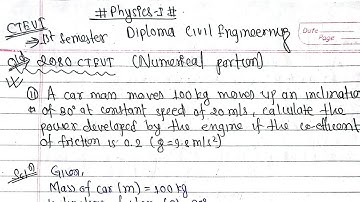 # Physics-I #
CTEVT
→ 1st semester Diploma Civil Engineering
Date
Page
2080 CTEVT (Numerical portion)
11) A car man moves 100kg moves up an inclination
of 30° at constant speed of 20 m/s, calculate the
power developed by the engine if the co-efficient
of friction is 0.2 (g=9.8 m/s²)
Solⁿ) Given,
Mass of car (m) = 100 kg